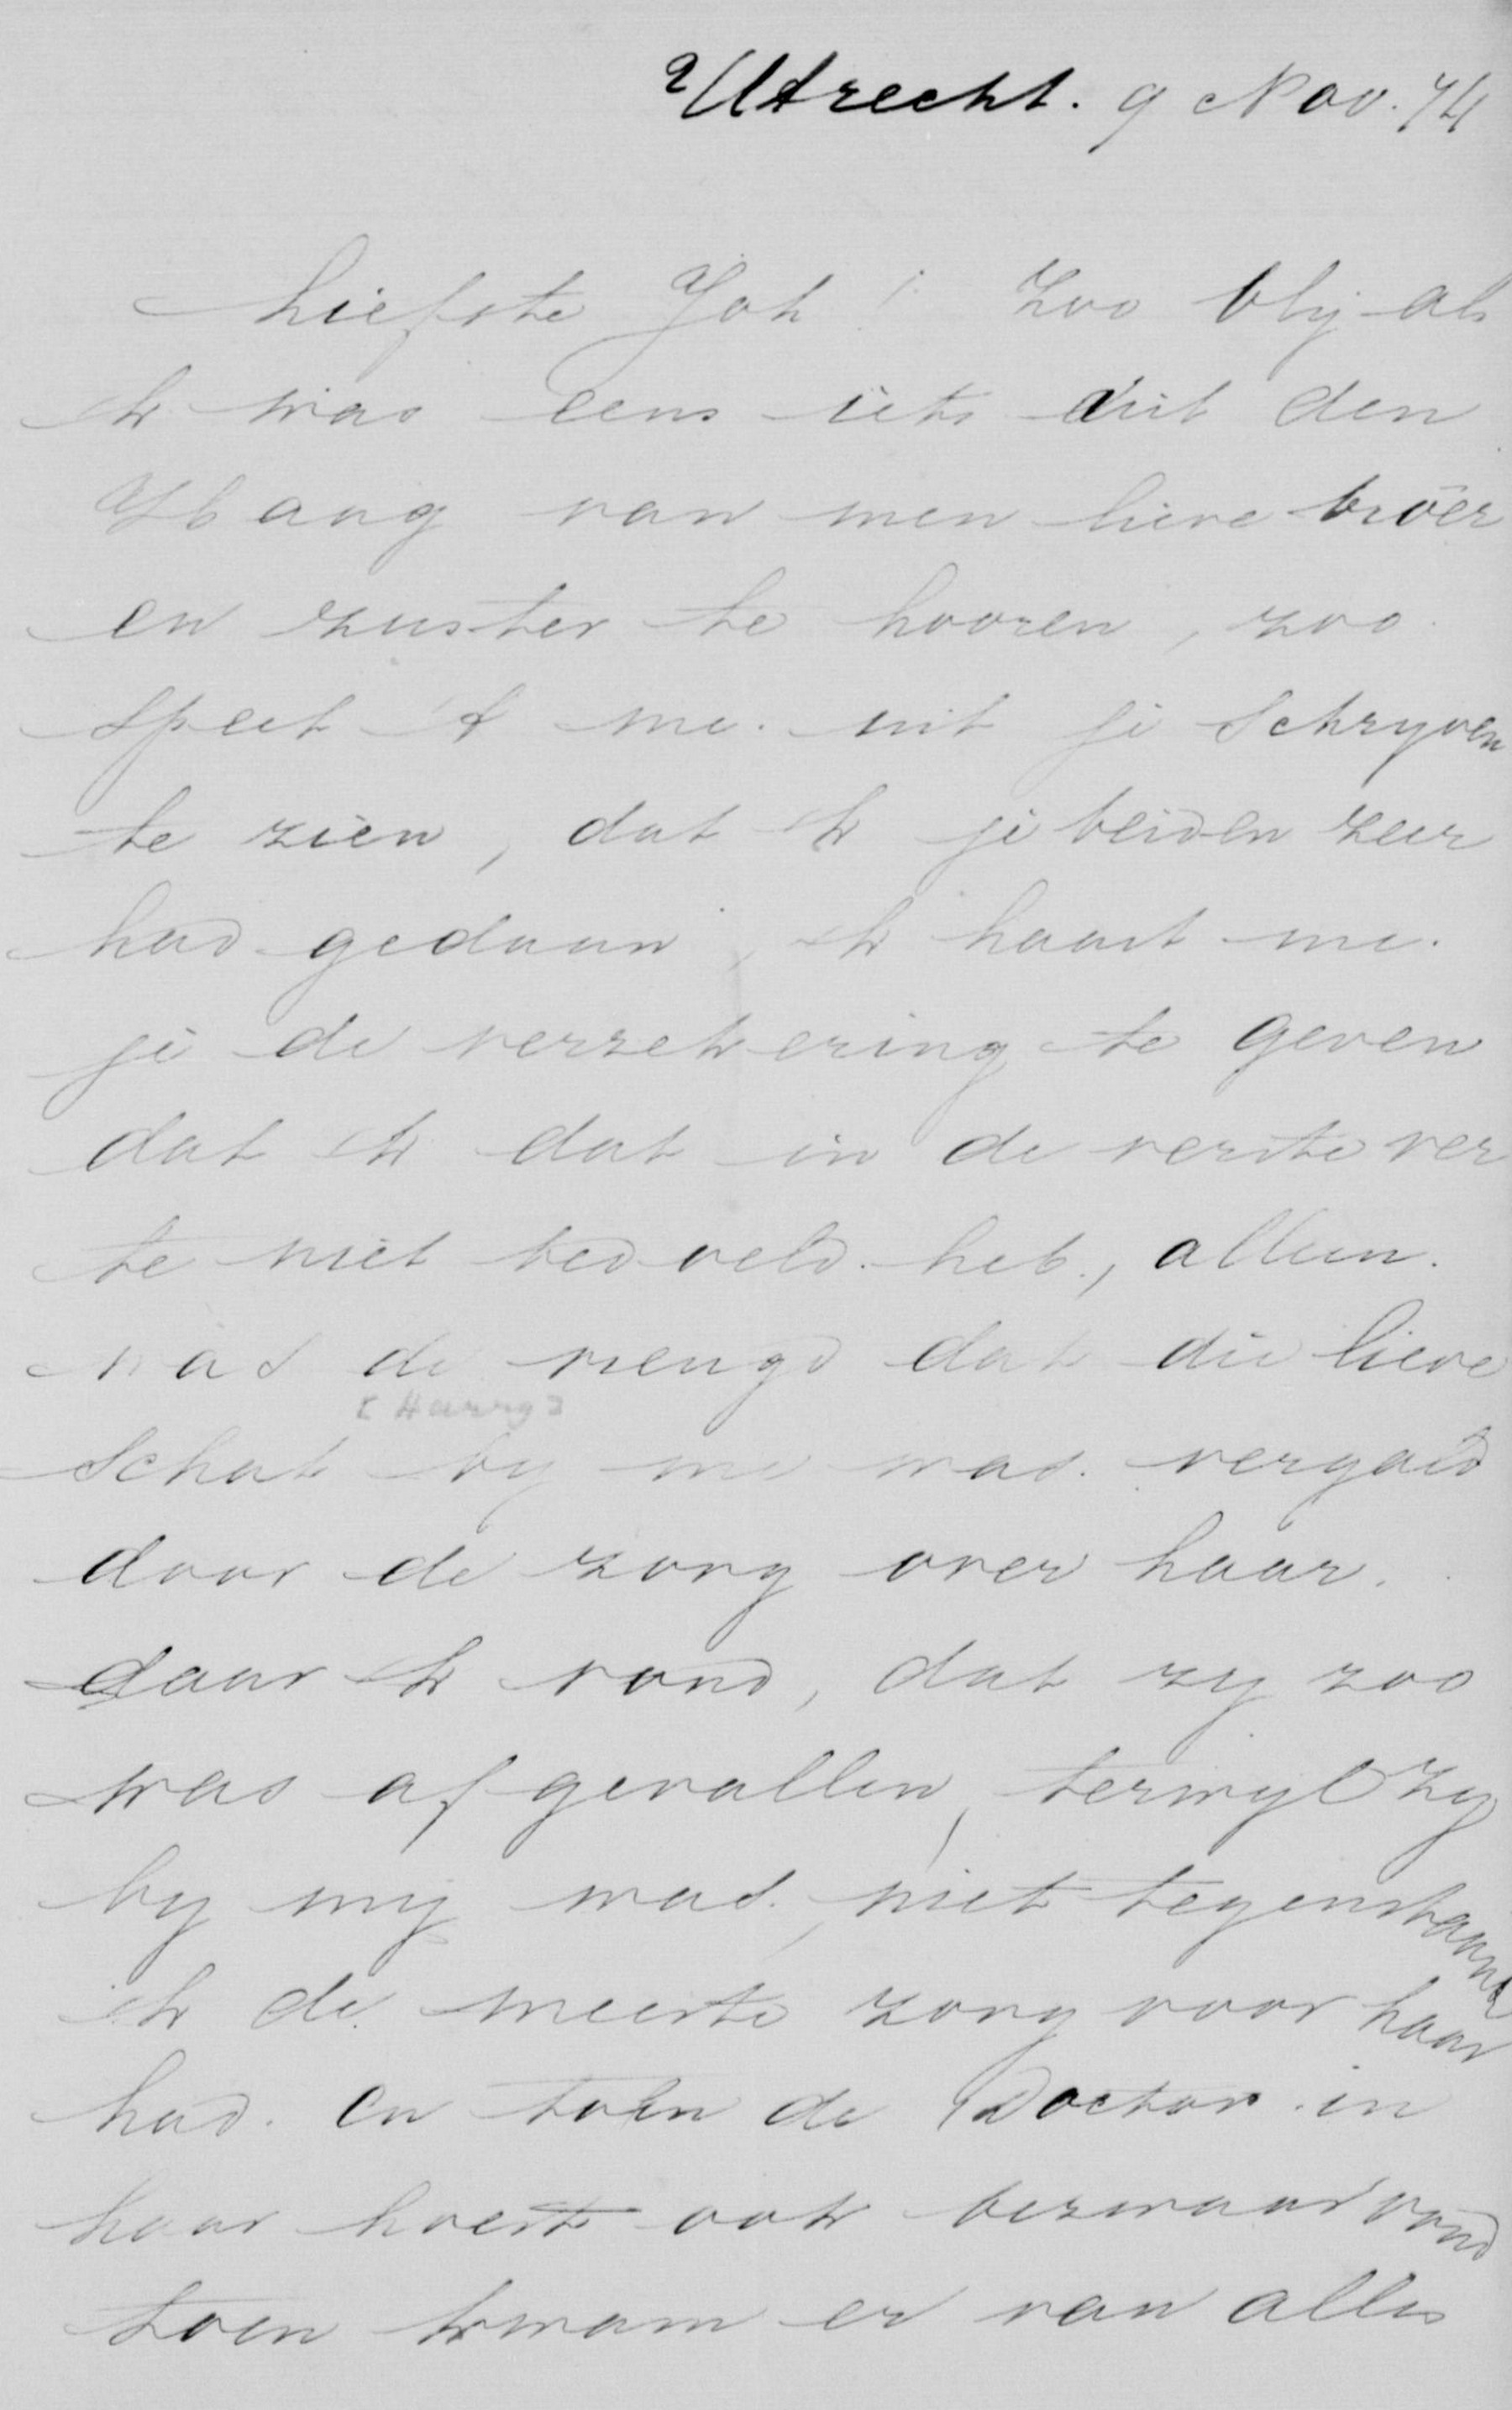 Utrecht. 9 Nov. 74
Liefste Joh! Zoo blij als
ik was eens iets uit den
Haag van men lieve broer
en zuster te hooren, zoo
speet 't me. uit je schryven
te zien, dat ik je beiden zeer
had gedaan, ik haast me.
je de verzekering te geven
dat ik dat in de verste ver
te niet bedoeld heb, alleen.
was de vreugd dat die lieve
[Harry]
schat by me was. vergald
door de zorg over haar.
daar ik vond, dat zy zoo
was afgevallen, terwyl zy
by my was, niet tegenstaande
ik de meeste zorg voor haar
had. en toen de Doctor in
haar hoest ook bezwaar vond
toen kwam er van alles